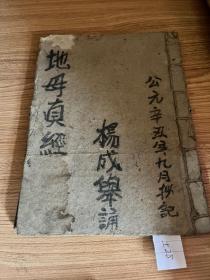 公元辛丑年九月抄記
楊成舉誦
地母真經